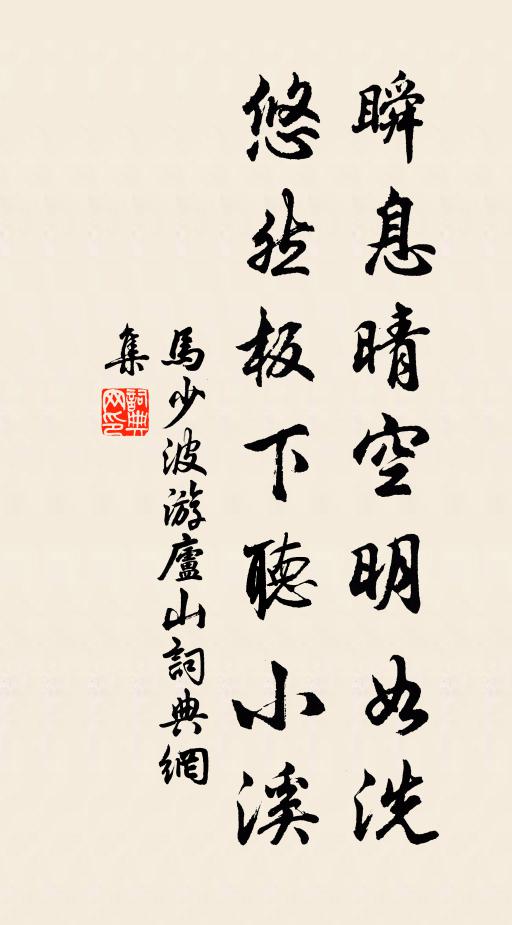 瞬息晴空明如洗
悠然板下聽小溪
馬少波游廬山詞典網
集
詞典网印